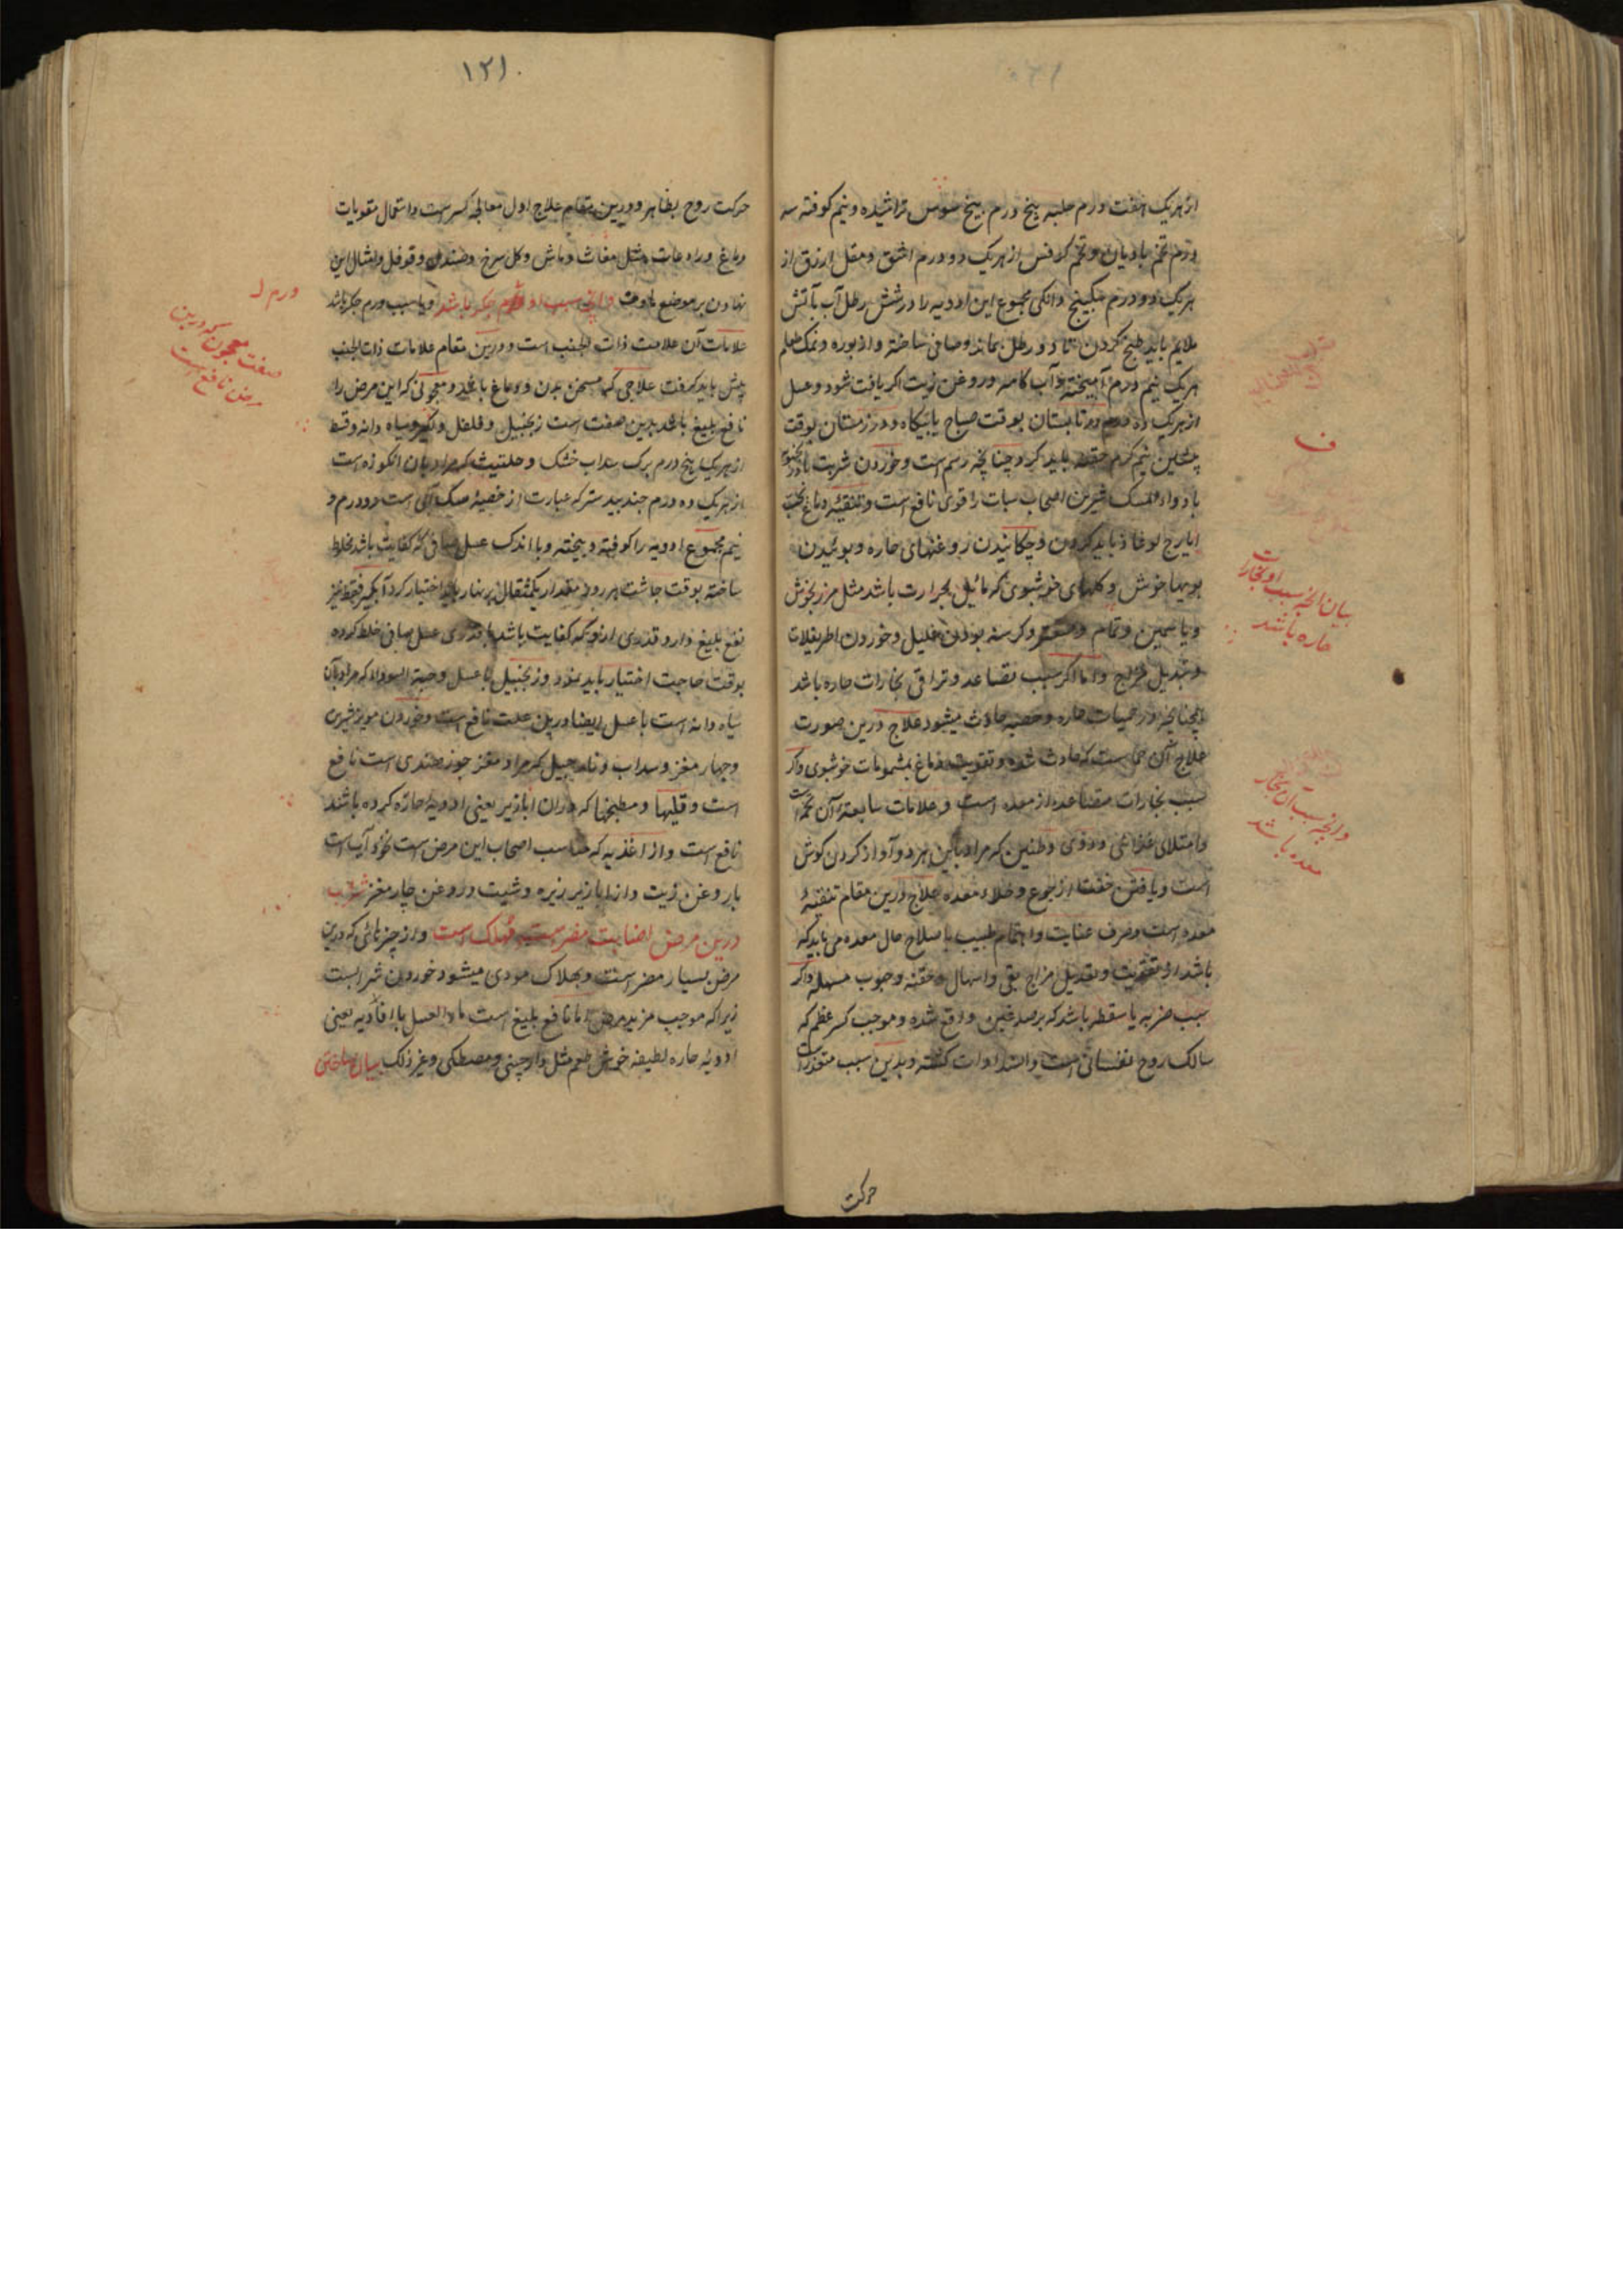 از هریک هفت درم حلبه پنج درم بیخ سوس تراشیده و نیم کوفته سه
درم تخم بادیان و تخم کرفس از هریک دو درم اشق و مقل ارزق از
هریک دو درم سکبینج دانکی مجموع این ادویه را در شش رطل آب بآتش
ملایم باید طبخ کردن تا دو رطل بماند و صافی ساخته و از بوره و نمک طعام
هریک نیم درم آمیخته و آب کامه و روغن زیت اکر یافت شود و عسل
از هریک ده درم در تابستان بوقت صباح یا بیکاه و در زمستان بوقت
پیشین نیم کرم حقنه باید کرد چنانچه رسم است و خوردن شربت
با دواء المسک شیرین اصحاب سبات را قوی نافع است و تنقیهٔ دماغ بحب
ایارج لوغاذیا باید کردن و چکانیدن روغنهای حاره و بوئیدن
بویها خوش و کلهای خوشبوی که مائیل بحرارت باشد مثل مرزنجوش
و یاسمین و نمام و کرسنه بودن قلیل و خوردن اطریفلات
و تبدیل مزاج و اما اکر سبب تصاعد و تراقی بخارات حاره باشد
چنانچه در حمیات حاره و حصبه حادث میشود علاج درین صورت
علاج آن حمی است که حادث شده و تقویت دماغ بمشمومات خوشبوی واکر
سبب بخارات متصاعده از معده است و علامات سابقهٔ آن تخمه است
و امتلای غذائی و دوی و طنین که مراد باین هر دو آواز کردن کوش
است و یافتن خفت از جوع و خلاء معده علاج درین مقام تنقیهٔ
معده است و صرف عنایت و اهتمام طبیب باصلاح حال معده می باید که
باشد از تقویت و تعدیل مزاج بقی و اسهال و حقنه و حبوب مسهله واکر
سبب ضربه یا سقطه باشد که بر صدغین واقع شده و موجب کسر عظم که
سالک روح نفسانی است و انسداد آن کشته و بدین سبب متعذر است
حرکت
بیان انچه سبب او بخارات
حاره باشد
ف
وانچه سبب آن بخار
معده باشد
۱۲۱
حرکت روح بظاهر و درین مقام علاج اول معالجهٔ کسر است و استعمال مقویات
دماغ و رادعات مثل مغاث و ماش و کل سرخ و صندل و فوفل و امثال این
نهادن بر موضع ماوف وانچه سبب او ورم جکر باشد و یا سبب ورم جکر باشد
علامات آن علامت ذات الجنب است و درین مقام علامات ذات الجنب
پیش باید کرفت علاجی که مسخن بدن و دماغ باشد و معجونی که این مرض را
نافع بلیغ باشد بدین صفت است زنجبیل و فلفل و سیاه دانه و قسط
از هریک پنج درم برک سداب خشک و حلتیت که مراد بان انکوزه است
از هریک ده درم جندبیدستر که عبارت از خصیهٔ سک آبی است دو درم و
نیم مجموع ادویه را کوفته و بیخته و با اندک عسل صافی که کفایت باشد مخلط
ساخته بوقت چاشت هر روز مقدار یکمثقال بر نهار باید اختیار کرد
نفع بلیغ دارد قدری ازو که کفایت باشد با قدری عسل صافی خلط کرده
بوقت حاجت اختیار باید نمود و زنجبیل با عسل و حبة السودا که مراد بآن
سیاه دانه است با عسل ایضا درین علت نافع است و خوردن مویز شیرین
و چهار مغز و سداب و نارجیل که مراد مغز جوز هندی است نافع
است و قلیها و مطبخها که دران ابازیر یعنی ادویهٔ حاره کرده باشند
نافع است و از اغذیه که مناسب اصحاب این مرض است نخود آب است
با روغن زیت و از ابازیر زیره و شبت و روغن چار مغز شراب
درین مرض مضر است و مهلک است و از چیزهائی که درین
مرض بسیار مضر است و بهلاک مودی میشود خوردن شرابست
زیرا که موجب مزید مرض اما نافع بلیغ است ماء العسل با افاویه یعنی
ادویه حاره لطیفه خوش طعم مثل دارچینی و مصطکی و غیر ذلک بیان ساختن
ورم
صفت معجون که درین
مرض نافع است